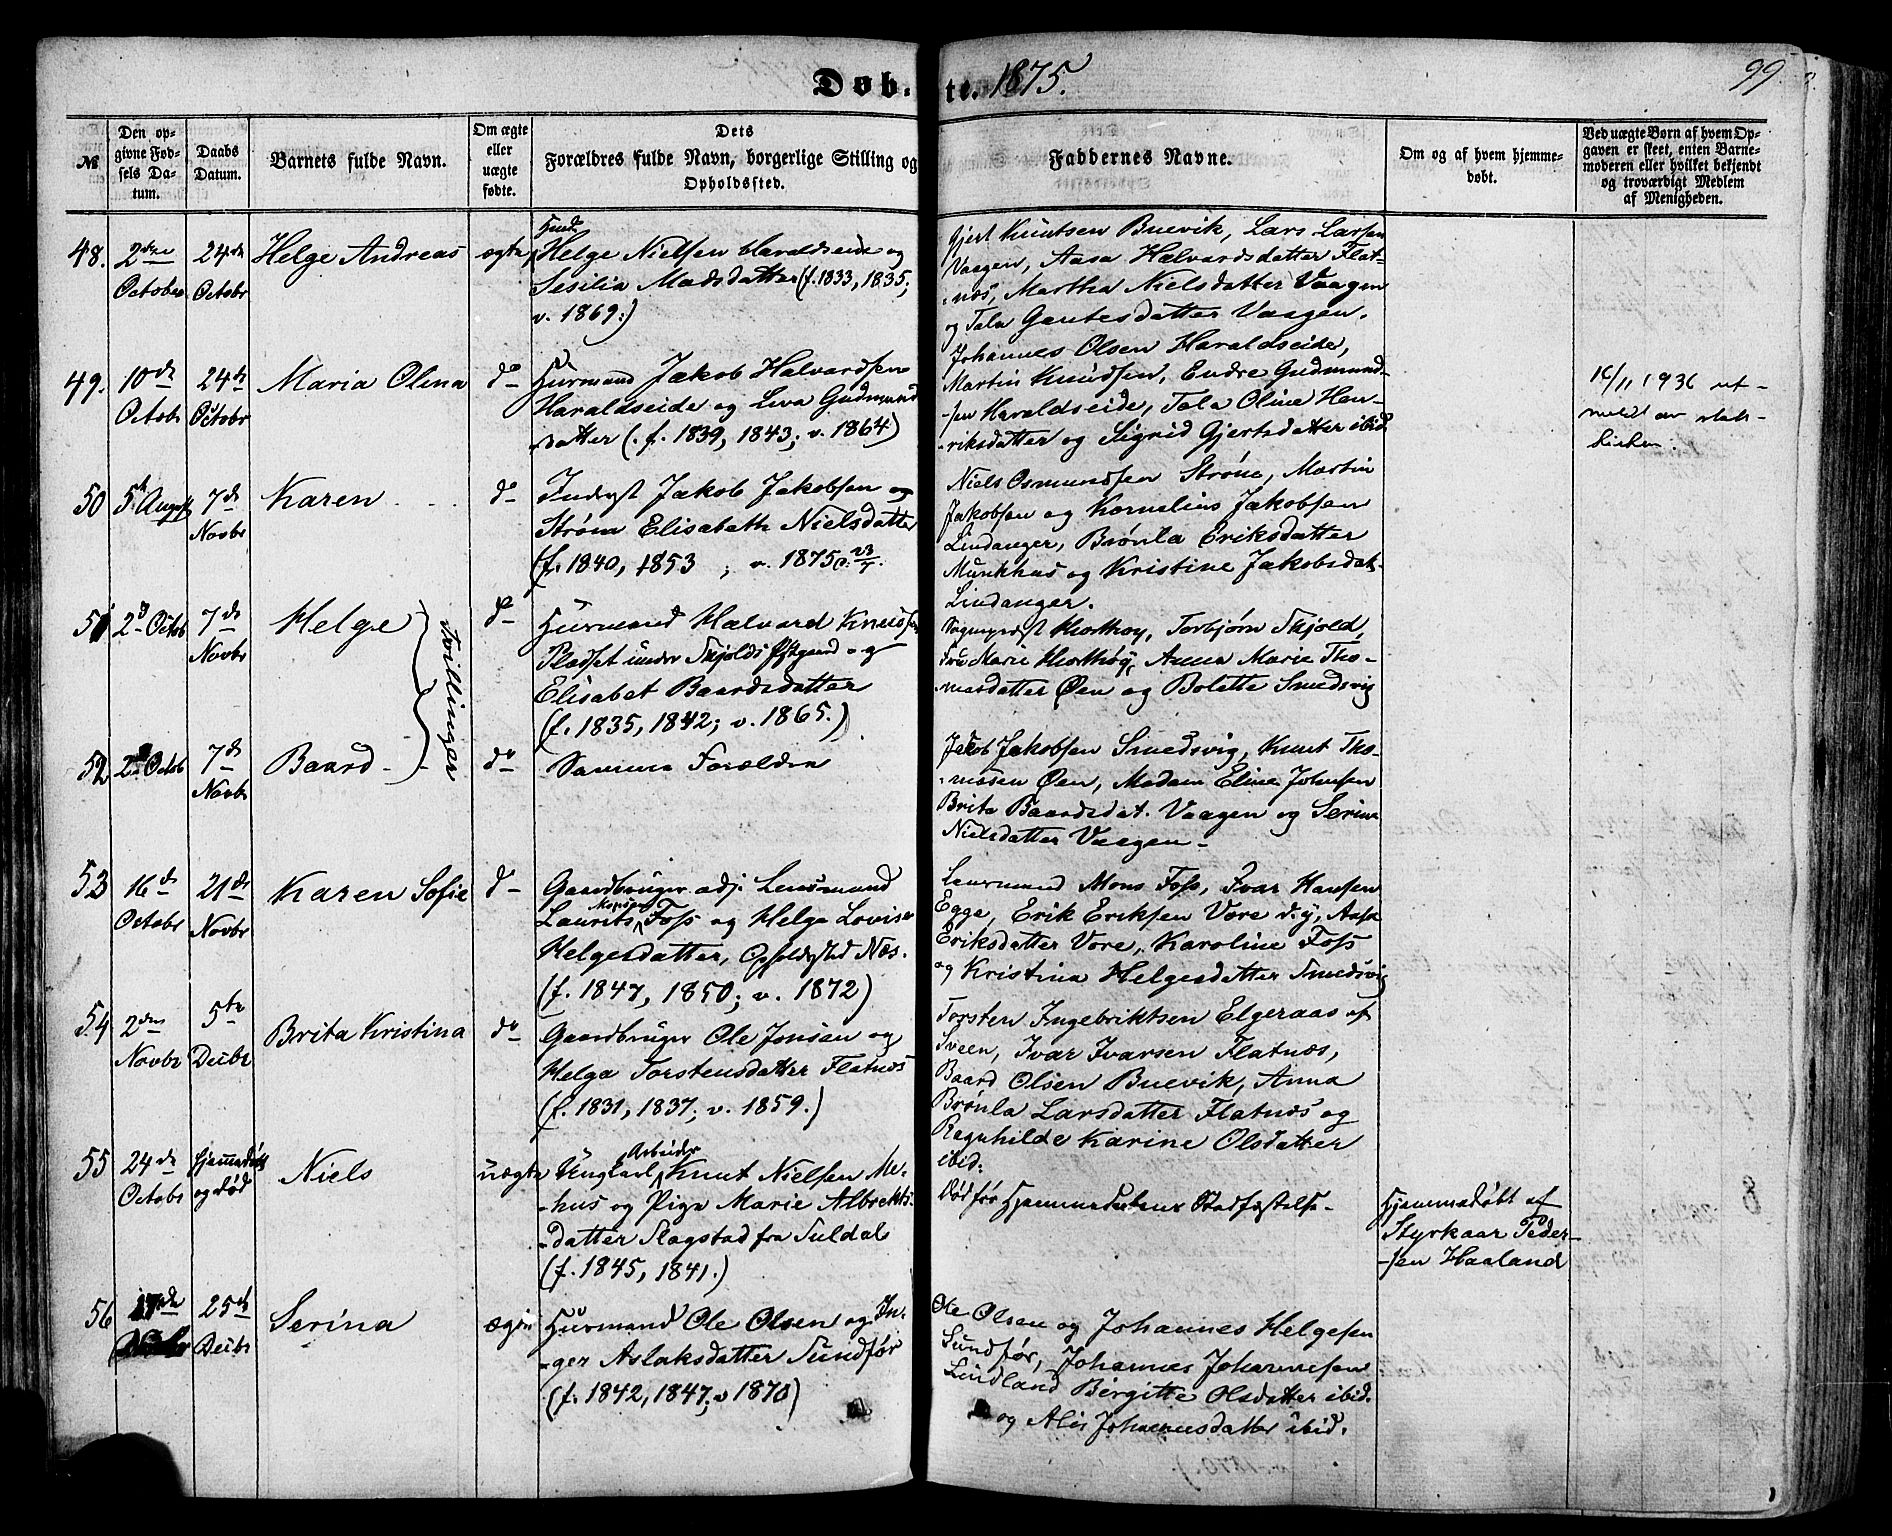 Døb. te. 1875.
99
№
Den op-
givne Fød-
sels Da-
tum.
Daabs
Datum.
Barnets fulde Navn.
Om ægte
eller
uægte
fødte.
Dets
Forældres fulde Navn, borgerlige Stilling og
Opholdssted.
Faddernes Navne.
Om og af hvem hjemme-
døbt.
Ved uægte Børn af hvem Op-
gaven er skeet, enten Barne-
moderen eller hvilket bekjendt
og troværdigt Medlem
af Menigheden.
48.
2den
October
24de
Octobr
Helge Andreas
ægte
Helge Nielsen Haraldseide og
Sesilia Madsdatter (f. 1833, 1835;
v. 1869.)
Gjert Knutsen Buevik, Lars Larsen
Vaagen, Aasa Halvardsdatter Flat-
næs, Martha Nielsdatter Vaagen
og Tala Gautesdatter Vaagen.
49.
10de
Octobr
24de
Octobr
Maria Olina
do
Huusmand Jakob Halvardsen
Haraldseide og Eva Gudmund
datter (f. 1839, 1843; v. 1864)
Johannes Olsen Haraldseide,
Martin Knudsen, Endre Gudmund-
sen Haraldseide, Tala Oline Hen-
riksdatter og Sigrid Gjertsdatter ibid
16/11 1936 ut-
meldt av stats-
kirken.
50
5te August
7de
Novbr
Karen
do
Inderst Jakob Jakobsen og
Strøm Elisabeth Nielsdatter
(f. 1840, 1853 ; v. 1875
Niels Osmundsen Strøm, Martin
Jakobsen og Kornelius Jakobsen
Lindanger, Brønla Eriksdatter
Munkhus og Kristine Jakobsdat.
Lindanger.
51
2d Octob
7de
Novbr
Helge
Tvillinger
do
Huusmand Halvard Knudsen
Pladset under Skjolds Prstgaard og
Elisabet Baardsdatter
(f. 1835, 1842; v. 1865.)
Sogneprest Horthoy, Torbjørn Skjold,
Fru Marie Horthøy, Anna Marie Tho-
masdatter Øen og Bolette Smedsvig
52
2d Octob
7de
Novbr
Baard
do
Samme Forældre
Jakob Jakobsen Smedsvig, Knut Tho-
massen Øen, Madam Eline Johnsen
Brita Baardsdat. Vaagen og Serina
Nielsdatter Vaagen
53
16de
Octobr
21de
Novbr
Karen Sofie
do
Gaardbruger adj. Lensmand
Laurits Monsen Foss og Helga Lovise
Helgesdatter, Opholdssted Næs.
(f. 1847, 1850; v. 1872)
Lensmand Mons Foss, Ivar Hansen
Egge, Erik Eriksen Vore d.y, Aasa
Eriksdatter Vore, Karoline Foss
og Kristina Helgesdatter Smedsvig
54
2den
Novbr
5te
Decbr
Brita Kristina
do
Gaardbruger Ole Jonsen og
Helga Torstensdatter Flatnæs
(f. 1831, 1837; v. 1859.)
Torsten Ingebriktsen Elgeraas af
Sveen, Ivar Ivarsen Flatnæs,
Baard Olsen Buevik, Anna
Brønla Larsdatter Flatnæs og
Regnhilde Karine Olsdatter
ibid.
55
24de
Octobr
Hjemmedøbt
og død
Niels
uægte
Ungkarl Arbeider Knut Nielsen Me-
hus og Pige Marie Albrekts-
datter Slagstad fra Suldal
(f. 1845, 1841.)
Død før Hjemmedaabens Stadfæstelse
Hjemmedøbt af
Styrkaar Peder-
sen Haaland
56
17de
Novbr
25de
Decbr
Serina
ægte
Huusmand Ole Olsen og In-
ger Aslaksdatter Sundfør
(f. 1842, 1847; v 1870)
Ole Olsen og Johannes Helgesen
Sundfør, Johannes Johannesen
Lindland Birgitte Olsdatter ibid.
og Alis Johannesdatter ibid.